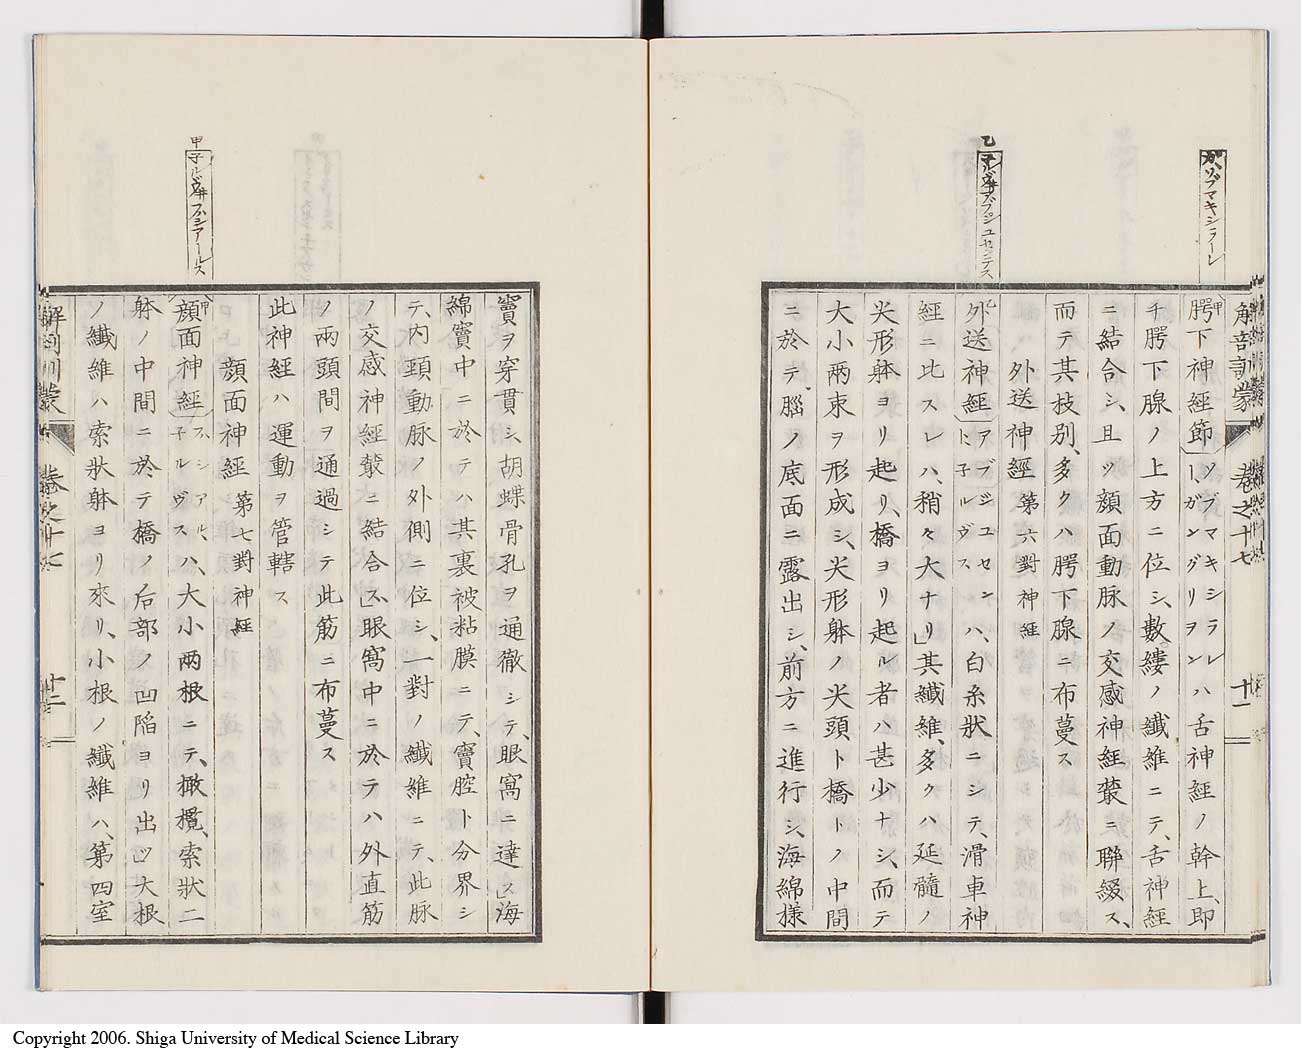 解剖訓蒙 巻之十七 十一
腭下神経節ソブマキシラレト、ガングリヲンハ舌神經ノ幹上、即
チ腭下腺ノ上方ニ位シ、數縷ノ纖維ニテ、舌神經
ニ結合シ、且ツ顔面動脉ノ交感神經䕺ニ聯綴ス、
而テ其枝別、多クハ腭下腺ニ布蔓ス
外送神經 第六對神經
外送神經アブジユセントネルヴスハ、白糸狀ニシテ、滑車神
經ニ此スレハ、稍々大ナリ」其纖維、多クハ延髓ノ
尖形躰ヨリ起リ、橋ヨリ起ル者ハ甚少ナシ、而テ
大小兩束ヲ形成シ、尖形躰ノ尖頭ト橋トノ中間
ニ於テ、腦ノ底面ニ露出シ、前方ニ進行シ、海綿樣
ガ、ソブマキシラーレ
乙
子ルヴ井ス、アブジュセンテス
竇ヲ穿貫シ、胡蝶骨孔ヲ通徹シテ、眼窩ニ達ス」海
綿竇中ニ於テハ其裏被粘膜ニテ、竇腔ト分界シ
テ、内頚動脉ノ外側ニ位シ、一對ノ纖維ニテ、此脉
ノ交感神經䕺ニ結合ス」眼窩中ニ於テハ外直筋
ノ兩頭間ヲ通過シテ此筋ニ布蔓ス
此神經ハ運動ヲ管轄ス
顔面神經 第七對神經
甲顔面神經ハシアル、子ルヴスハ、大小兩根ニテ、橄欖、索狀二
躰ノ中間ニ於テ橋ノ后部ノ凹陷ヨリ出ツ」大根
ノ纖維ハ索狀躰ヨリ來リ、小根ノ纖維ハ、第四室
甲
子ルヴ井、ハシアールス
解剖訓蒙 巻之十七 十二
Copyright 2006. Shiga University of Medical Science Library